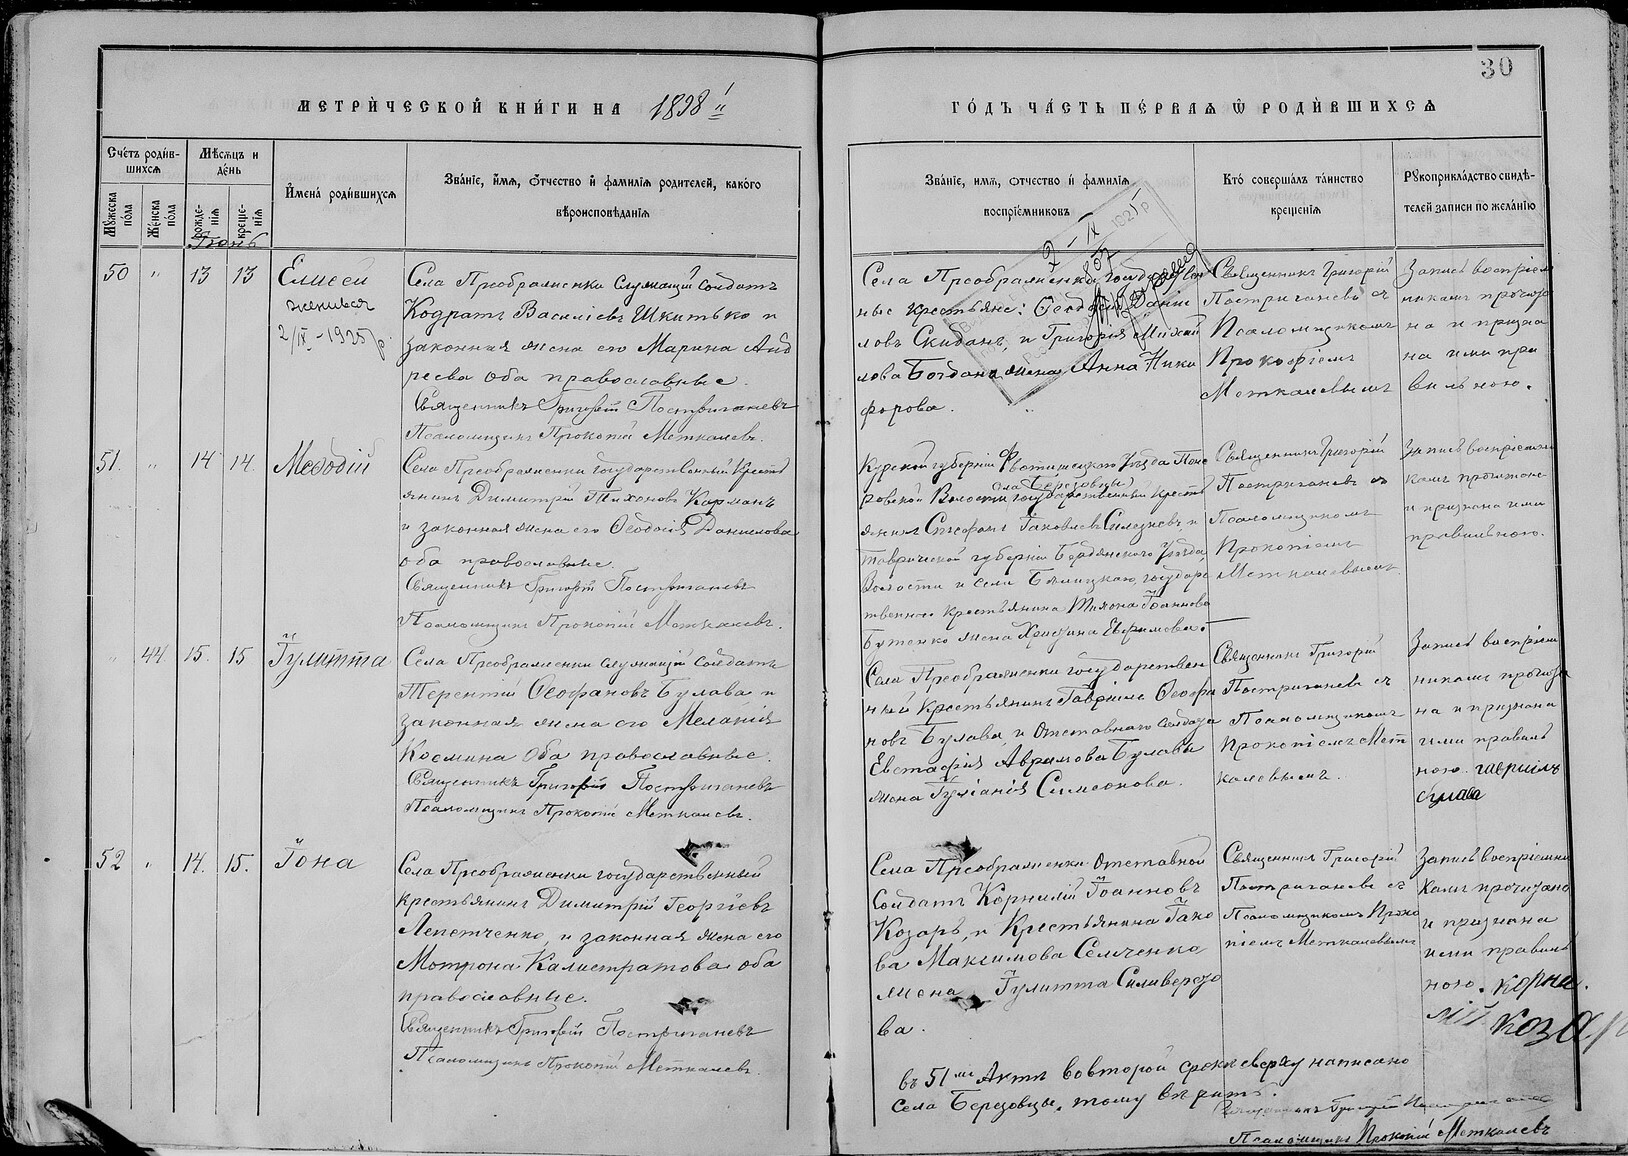 30
МЕТРИ́ЧЕСКОЙ КНИ́ГИ НА 1898 ГО́ДЪ ЧА́СТЬ ПЕ́РВАѦ Ѡ РОДИ́ВШИХСѦ
Сче́тъ роди́вшихсѧ
Мѹжеска по́ла
Же́нска по́ла
Мѣ́сѧцъ и де́нь
рожде́нїѧ
креще́нїѧ
И҆мена̀ роди́вшихсѧ
Зва́нїе, и҆́мѧ, ѻ҆́тчество и҆ фами́лїѧ роди́телей, како́го
вѣроисповѣ́данїѧ
Зва́нїе, и҆́мѧ, ѻ҆́тчество и҆ фами́лїѧ
воспрїе́мниковъ
Кто̀ соверша́лъ та́инство
креще́нїѧ
Рꙋкоприкла́дство свидѣ́-
телей записи по жела́нїю
Іюнь
50 " 13 13
Елисей
женился
2/IX – 1925 р
Села Преображенки служащій солдатъ
Кодратъ Василіевъ Шкитько и
законная жена его Марина Анд
реева оба православные.
Священникъ Григорій Постригачевъ
Псаломщикъ Прокопій Меткалевъ.
Села Преображенки государствен
ные крестьяне: Феодосій Данiи
ловъ Скиданъ, и Григорія Михай
лова Богдана жена Анна Ники
форова.
Священникъ Григорій
Постригачевъ съ
Псаломщикомъ
Прокофіемъ
Меткалевымъ
Запись воспріем
никамъ прочита
на и призна
на ими пра
вильною.
51. " 14 14.
Меѳодій
Села Преображенки государственный крестья
янинъ Димитрій Тихоновъ Карманъ
и законная жена его Феодосія Данилова
оба православные.
Священникъ Григорій Постригачевъ
Псаломщикъ Прокопій Меткалевъ.
села Березовцы
янинъ
Таврической губерніи Бердянского Уѣзда,
Волости и села государс
твенного крестьянина Тихона Іоаннова
Бутенко жена Христина Евфимова.
Священникъ Григорій
Постригачевъ съ
Псаломщикомъ
Прокопіемъ
Меткалевымъ
Запись воспріемни
камъ прочитана
и признана ими
правильною.
" 44 15. 15
Іулитта
Села Преображенки служащій солдатъ
Терентій Феофановъ Булава и
законная жена его Меланія
Космина Оба православные.
Священникъ Григорій Постригачевъ
Псаломщикъ Прокопій Меткалевъ.
Села Преображенки государствен
ный крестьянинъ Гавріилъ Феофа
новъ Булава, и Отставного солдата
Евстафія Аврамова Булавы
жена Іуліанія Симеонова.
Священникъ Григорій
Постригачевъ съ
Псаломщикомъ
Прокопіемъ Мет
калевымъ.
Запись воспріем
никамъ прочита
на и признана
ими правиль
ною. гавриилъ
булава
52 " 14. 15.
Іона
Села Преображенки государственный
крестьянинъ Димитрій Георгіевъ
Лепетченко, и законная жена его
Мотрона Калистратова оба
православные.
Священникъ Григорій Постригачевъ
Псаломщикъ Прокопій Меткалевъ.
Села Преображенки Отставной
Солдатъ Корнилій Іоанновъ
Козаръ, и Крестьянина Іако
ва Максимова Семченка
жена Іулитта Сильверсто
ва.
Священникъ Григорій
Постригачевъ съ
Псаломщикомъ Проко
піемъ Меткалевымъ
Запись воспріемни
камъ прочитано
и признана
ими правиль
ною. корни
лій козаръ
въ 51мъ Актѣ во второй срокѣ сверху написано
села Березовцы, тому вѣрить.
Священникъ Григорій Постригачевъ
Псаломщикъ Прокопій Меткалевъ